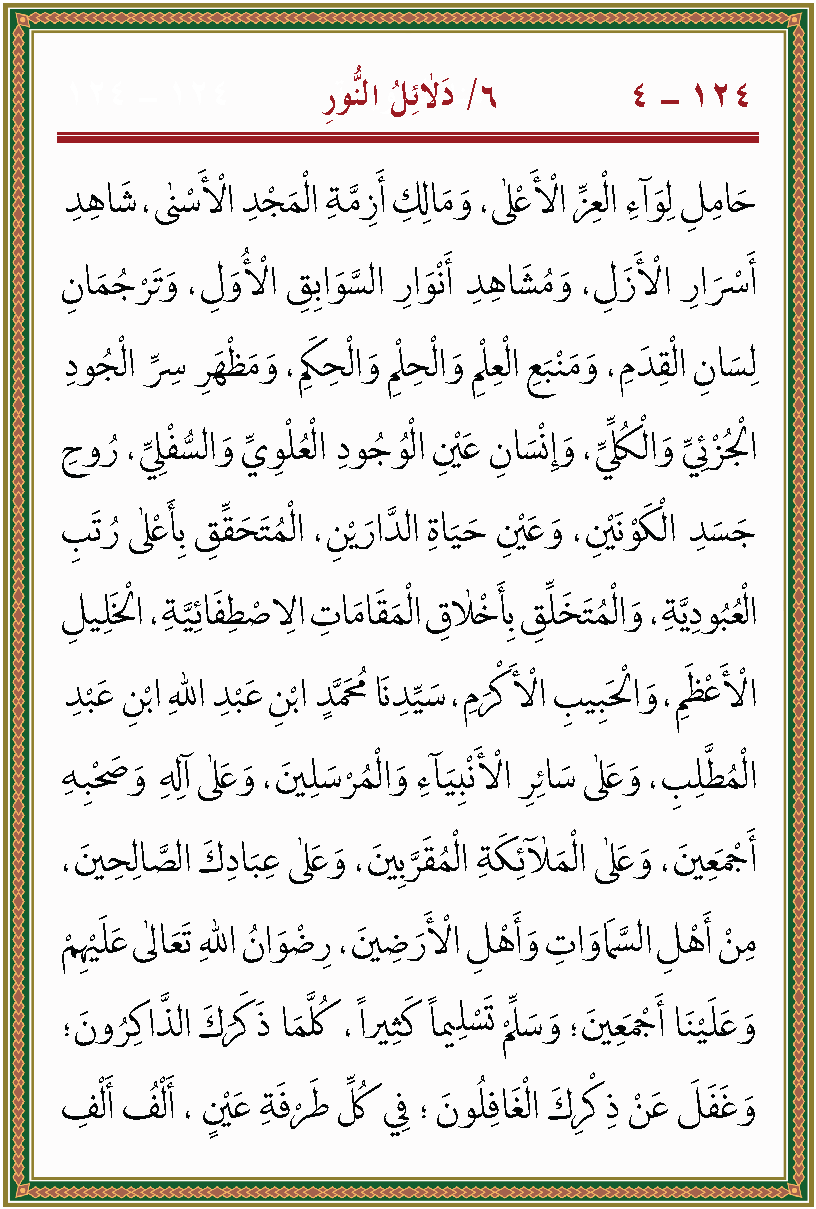 ١٢٤ - ٤ ٦/ دَلَائِلُ النُّورِ ١٢٤ ١٢٤
حَامِلِ لِوَآءِ الْعِزِّ الْأَعْلٰى، وَمَالِكِ أَزِمَّةِ الْمَجْدِ الْأَسْنٰى، شَاهِدِ
أَسْرَارِ الْأَزَلِ، وَمُشَاهِدِ أَنْوَارِ السَّوَابِقِ الْأُوَلِ، وَتَرْجُمَانِ
لِسَانِ الْقِدَمِ، وَمَنْبَعِ الْعِلْمِ وَالْحِلْمِ وَالْحِكَمِ، وَمَظْهَرِ سِرِّ الْجُودِ
الْجُزْئِيِّ وَالْكُلِّيِّ، وَإِنْسَانِ عَيْنِ الْوُجُودِ الْعُلْوِيِّ وَالسُّفْلِيِّ، رُوحِ
جَسَدِ الْكَوْنَيْنِ، وَعَيْنِ حَيَاةِ الدَّارَيْنِ، الْمُتَحَقِّقِ بِأَعْلٰى رُتَبِ
الْعُبُودِيَّةِ، وَالْمُتَخَلِّقِ بِأَخْلَاقِ الْمَقَامَاتِ الِاصْطِفَائِيَّةِ، الْخَلِيلِ
الْأَعْظَمِ، وَالْحَبِيبِ الْأَكْرَمِ، سَيِّدِنَا مُحَمَّدٍ ابْنِ عَبْدِ اللهِ ابْنِ عَبْدِ
الْمُطَّلِبِ، وَعَلٰى سَائِرِ الْأَنْبِيَآءِ وَالْمُرْسَلِينَ، وَعَلٰى آلِهِ وَصَحْبِهِ
أَجْمَعِينَ، وَعَلٰى الْمَلَآئِكَةِ الْمُقَرَّبِينَ، وَعَلٰى عِبَادِكَ الصَّالِحِينَ،
مِنْ أَهْلِ السَّمَاوَاتِ وَأَهْلِ الْأَرَضِينَ، رِضْوَانُ اللهِ تَعَالٰى عَلَيْهِمْ
وَعَلَيْنَا أَجْمَعِينَ؛ وَسَلِّمْ تَسْلِيماً كَثِيراً، كُلَّمَا ذَكَرَكَ الذَّاكِرُونَ؛
وَغَفَلَ عَنْ ذِكْرِكَ الْغَافِلُونَ؛ فِي كُلِّ طَرْفَةِ عَيْنٍ، أَلْفُ أَلْفِ